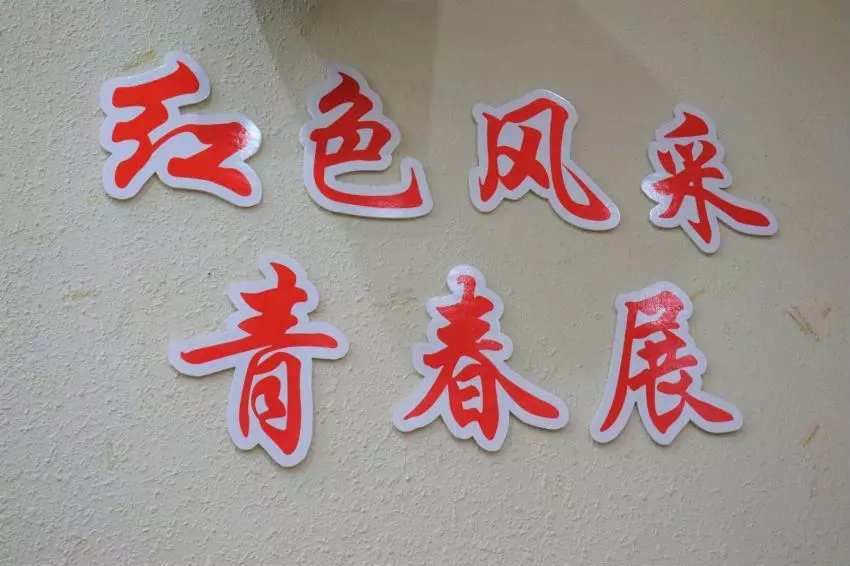 红色风采
青春展